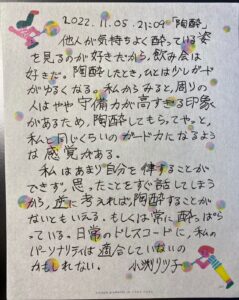 2022.11.05.21:09「陶酔」
他人が気持ちよく酔っている姿
を見るのが好きだから、飲み会は
好きだ。陶酔したとき、ひとは少しガード
がゆるくなる。私からみると、周りの
人はやや守備力が高すぎる印象
があるため、陶酔してもらってやっと、
私と同じくらいのガード力になるような
感覚がある。
私はあまり自分を律することが
できず、思ったことをすぐ話してしまう
から、逆に考えれば、陶酔することが
ないともいえる。もしくは常に酔っぱら
っている。日常のドレスコードに、私の
パーソナリティは適合していないの
かもしれない。